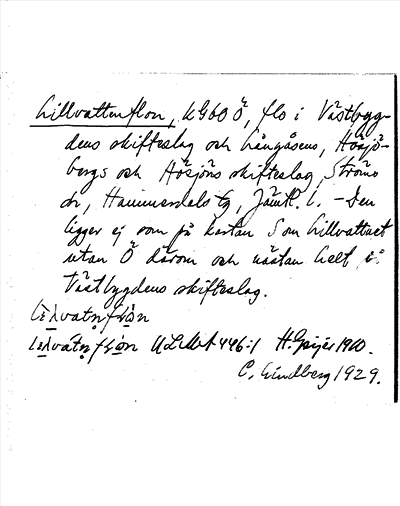 Lillvattenflon, KG60 Ö, flo i Västbyg-
dens skifteslag och Långåsens, Högsjö-
bergs och Högsjöns skifteslag, Ströms
sn, Hammerdals tg, Jämtl. l. – Den
ligger ej som på kartan S om Lillvattnet
utan Ö därom och nästan helt i
Västbygdens skifteslag.
ULMA 446:1 H. Geijer 1910.
C. Lindberg 1929.